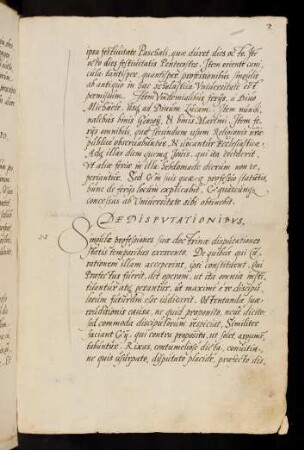 ipsa festivitate Paschali, quae durat dies octo, se
octo dies festivitatis Pentecostes. Item erient cani
cula tantisper, quantisper professionibus singulis
ab antiquo in hac scholastica Universitate est
Item Vindemialibus ferijs, a Divo
Michaele usq. ad Divum Lucam. Item
nalibus binis Gregorij, & binis Martini. Item fe
rijs omnibus, quae secundum usum Religionis
publice observabuntur, & vocantur Ecclesiasticae
Ad illas diem quemq. Jovis, qui ita
si aliae feriae in illa hebdomade dierum non re
periantur. Sed Gym sua quaeq. professio statuta
bunc de ferijs locum explicabit, & quatenus
concilium ab Universitate sibi obtinebit.
DE DISPUTATIONIBUS.
Singulae professiones suae doctrinae disputationes
statis temporibus exercento. De quibus qui cu
rationem illam acceperint, ipsi constituent. Qui
Praefectus fuerit, det operam, ut ita omnia insti
tuantur atq. peragantur, ut maxime e re discipu
lorum futurum esse videbit. Ostentandae suae
eruditionis causa, ne quid proponito, neve dicito
sed commoda discipulorum respiciat. Similiter
faciant Gij, qui contra proposita, ut solet, argumen
tabuntur. Rixas, contumeliose dicta, convitia,
ne quis usurpato, disputato placide, praefecto dis